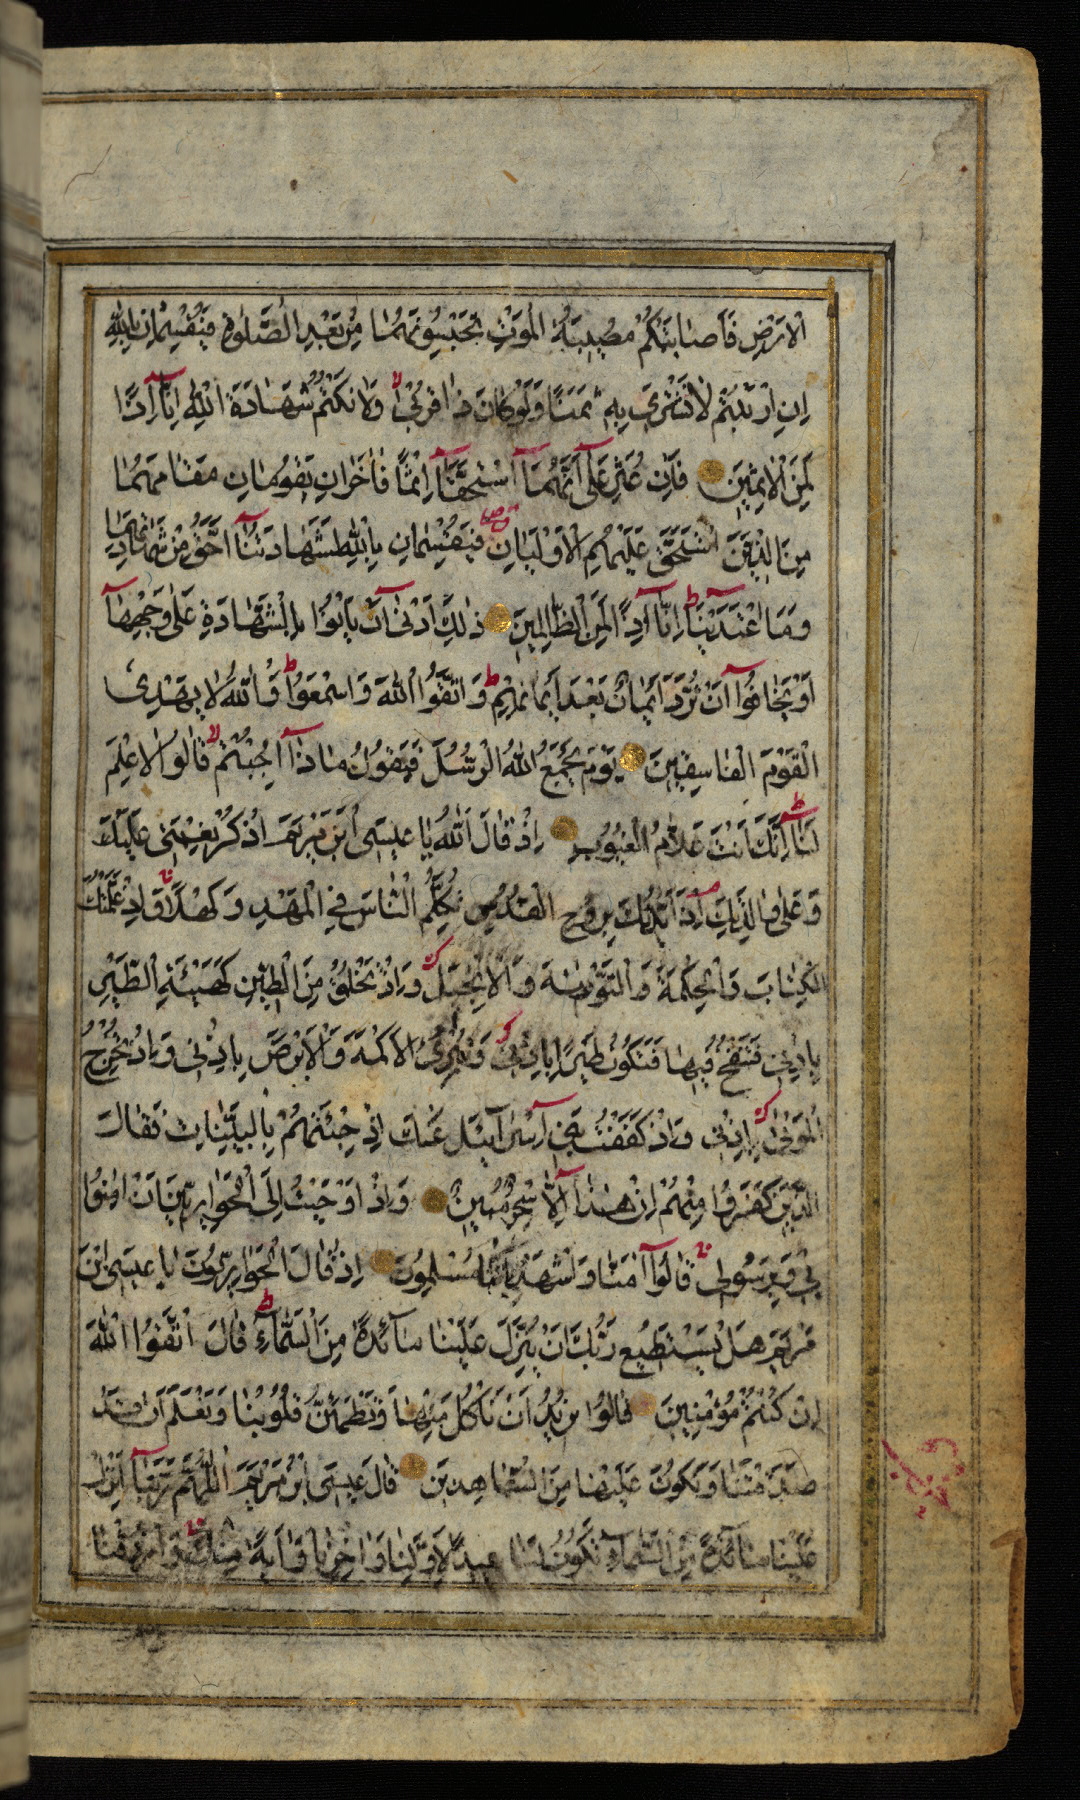 الْاَرْضِ فَاَصَابَتْكُمْ مُصِيبَةُ الْمَوْتِ تَحْبِسُونَهُمَا مِنْ بَعْدِ الصَّلٰوةِ فَيُقْسِمَانِ بِاللّٰهِ
اِنِ ارْتَبْتُمْ لَا نَشْتَرِى بِهٖ ثَمَنًا وَلَوْ كَانَ ذَا قُرْبٰى وَلَا نَكْتُمُ شَهَادَةَ اللّٰهِ اِنَّا اِذًا
لَمِنَ الْاٰثِمِينَ فَاِنْ عُثِرَ عَلٰى اَنَّهُمَا اسْتَحَقَّا اِثْمًا فَاٰخَرَانِ يَقُومَانِ مَقَامَهُمَا
مِنَ الَّذِينَ اسْتَحَقَّ عَلَيْهِمُ الْاَوْلَيَانِ فَيُقْسِمَانِ بِاللّٰهِ لَشَهَادَتُنَا اَحَقُّ مِنْ شَهَادَتِهِمَا
وَمَا اعْتَدَيْنَا اِنَّا اِذًا لَمِنَ الظَّالِمِينَ ذٰلِكَ اَدْنٰى اَنْ يَاْتُوا بِالشَّهَادَةِ عَلٰى وَجْهِهَا
اَوْ يَخَافُوا اَنْ تُرَدَّ اَيْمَانٌ بَعْدَ اَيْمَانِهِمْ وَاتَّقُوا اللّٰهَ وَاسْمَعُوا وَاللّٰهُ لَا يَهْدِى
الْقَوْمَ الْفَاسِقِينَ يَوْمَ يَجْمَعُ اللّٰهُ الرُّسُلَ فَيَقُولُ مَاذَا اُجِبْتُمْ قَالُوا لَا عِلْمَ
لَنَا اِنَّكَ اَنْتَ عَلَّامُ الْغُيُوبِ اِذْ قَالَ اللّٰهُ يَا عِيسَى ابْنَ مَرْيَمَ اذْكُرْ نِعْمَتِى عَلَيْكَ
وَعَلٰى وَالِدَتِكَ اِذْ اَيَّدْتُكَ بِرُوحِ الْقُدُسِ تُكَلِّمُ النَّاسَ فِى الْمَهْدِ وَكَهْلًا وَاِذْ عَلَّمْتُكَ
الْكِتَابَ وَالْحِكْمَةَ وَالتَّوْرٰيةَ وَالْاِنْجِيلَ وَاِذْ تَخْلُقُ مِنَ الطِّينِ كَهَيْئَةِ الطَّيْرِ
بِاِذْنِى فَتَنْفُخُ فِيهَا فَتَكُونُ طَيْرًا بِاِذْنِى وَتُبْرِئُ الْاَكْمَهَ وَالْاَبْرَصَ بِاِذْنِى وَاِذْ تُخْرِجُ
الْمَوْتٰى بِاِذْنِى وَاِذْ كَفَفْتُ بَنِى اِسْرَآئِيلَ عَنْكَ اِذْ جِئْتَهُمْ بِالْبَيِّنَاتِ فَقَالَ
الَّذِينَ كَفَرُوا مِنْهُمْ اِنْ هٰذَا اِلَّا سِحْرٌ مُبِينٌ وَاِذْ اَوْحَيْتُ اِلَى الْحَوَارِيِّينَ اَنْ اٰمِنُوا
بِى وَبِرَسُولِى قَالُوا اٰمَنَّا وَاشْهَدْ بِاَنَّنَا مُسْلِمُونَ اِذْ قَالَ الْحَوَارِيُّونَ يَا عِيسَى ابْنَ
مَرْيَمَ هَلْ يَسْتَطِيعُ رَبُّكَ اَنْ يُنَزِّلَ عَلَيْنَا مَآئِدَةً مِنَ السَّمَآءِ قَالَ اتَّقُوا اللّٰهَ
اِنْ كُنْتُمْ مُؤْمِنِينَ قَالُوا نُرِيدُ اَنْ نَاْكُلَ مِنْهَا وَتَطْمَئِنَّ قُلُوبُنَا وَنَعْلَمَ اَنْ قَدْ
صَدَقْتَنَا وَنَكُونَ عَلَيْهَا مِنَ الشَّاهِدِينَ قَالَ عِيسَى ابْنُ مَرْيَمَ اللّٰهُمَّ رَبَّنَا اَنْزِلْ
عَلَيْنَا مَآئِدَةً مِنَ السَّمَآءِ تَكُونُ لَنَا عِيدًا لِاَوَّلِنَا وَاٰخِرِنَا وَاٰيَةً مِنْكَ وَارْزُقْنَا